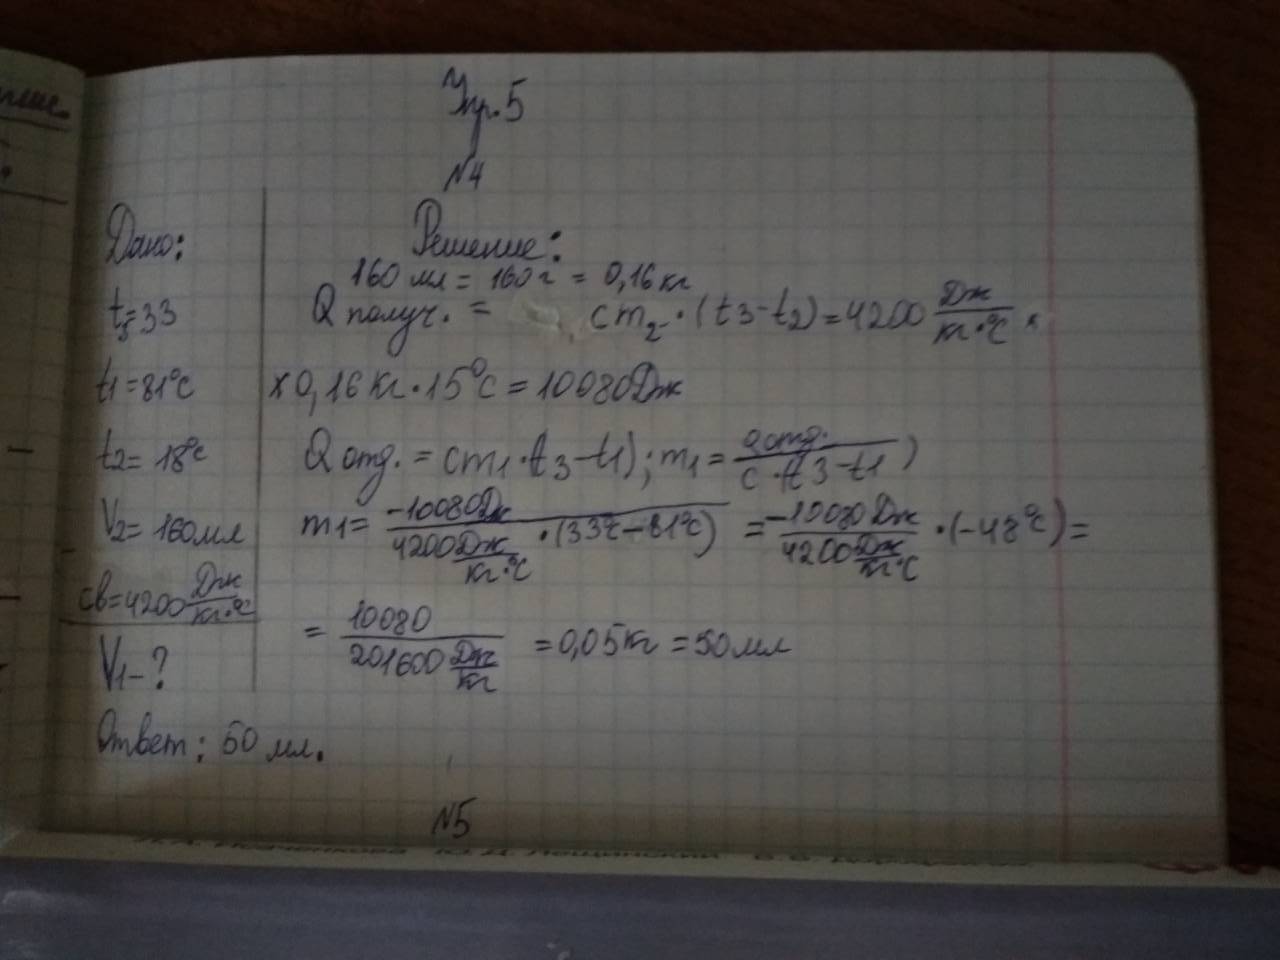 Упр. 5
№4
Дано:
t3=33
t1=81°C
t2=18°C
V2=160мл
cв=4200 Дж/кг·°C
V1-?
Решение:
160 мл = 160г = 0,16 кг
Q получ. = cm2·(t3-t2)=4200 Дж/кг·°C ×
×0,16 кг·15°C=10080Дж
Q отд. = cm1·t3-t1); m1= Qотд./c·(t3-t1)
m1= -10080Дж/4200 Дж/кг·°C ·(33°C-81°C) = -10080 Дж/4200 Дж/кг·°C ·(-48°C)=
= 10080/201600 Дж/кг =0,05кг =50мл
Ответ: 50 мл.
№5